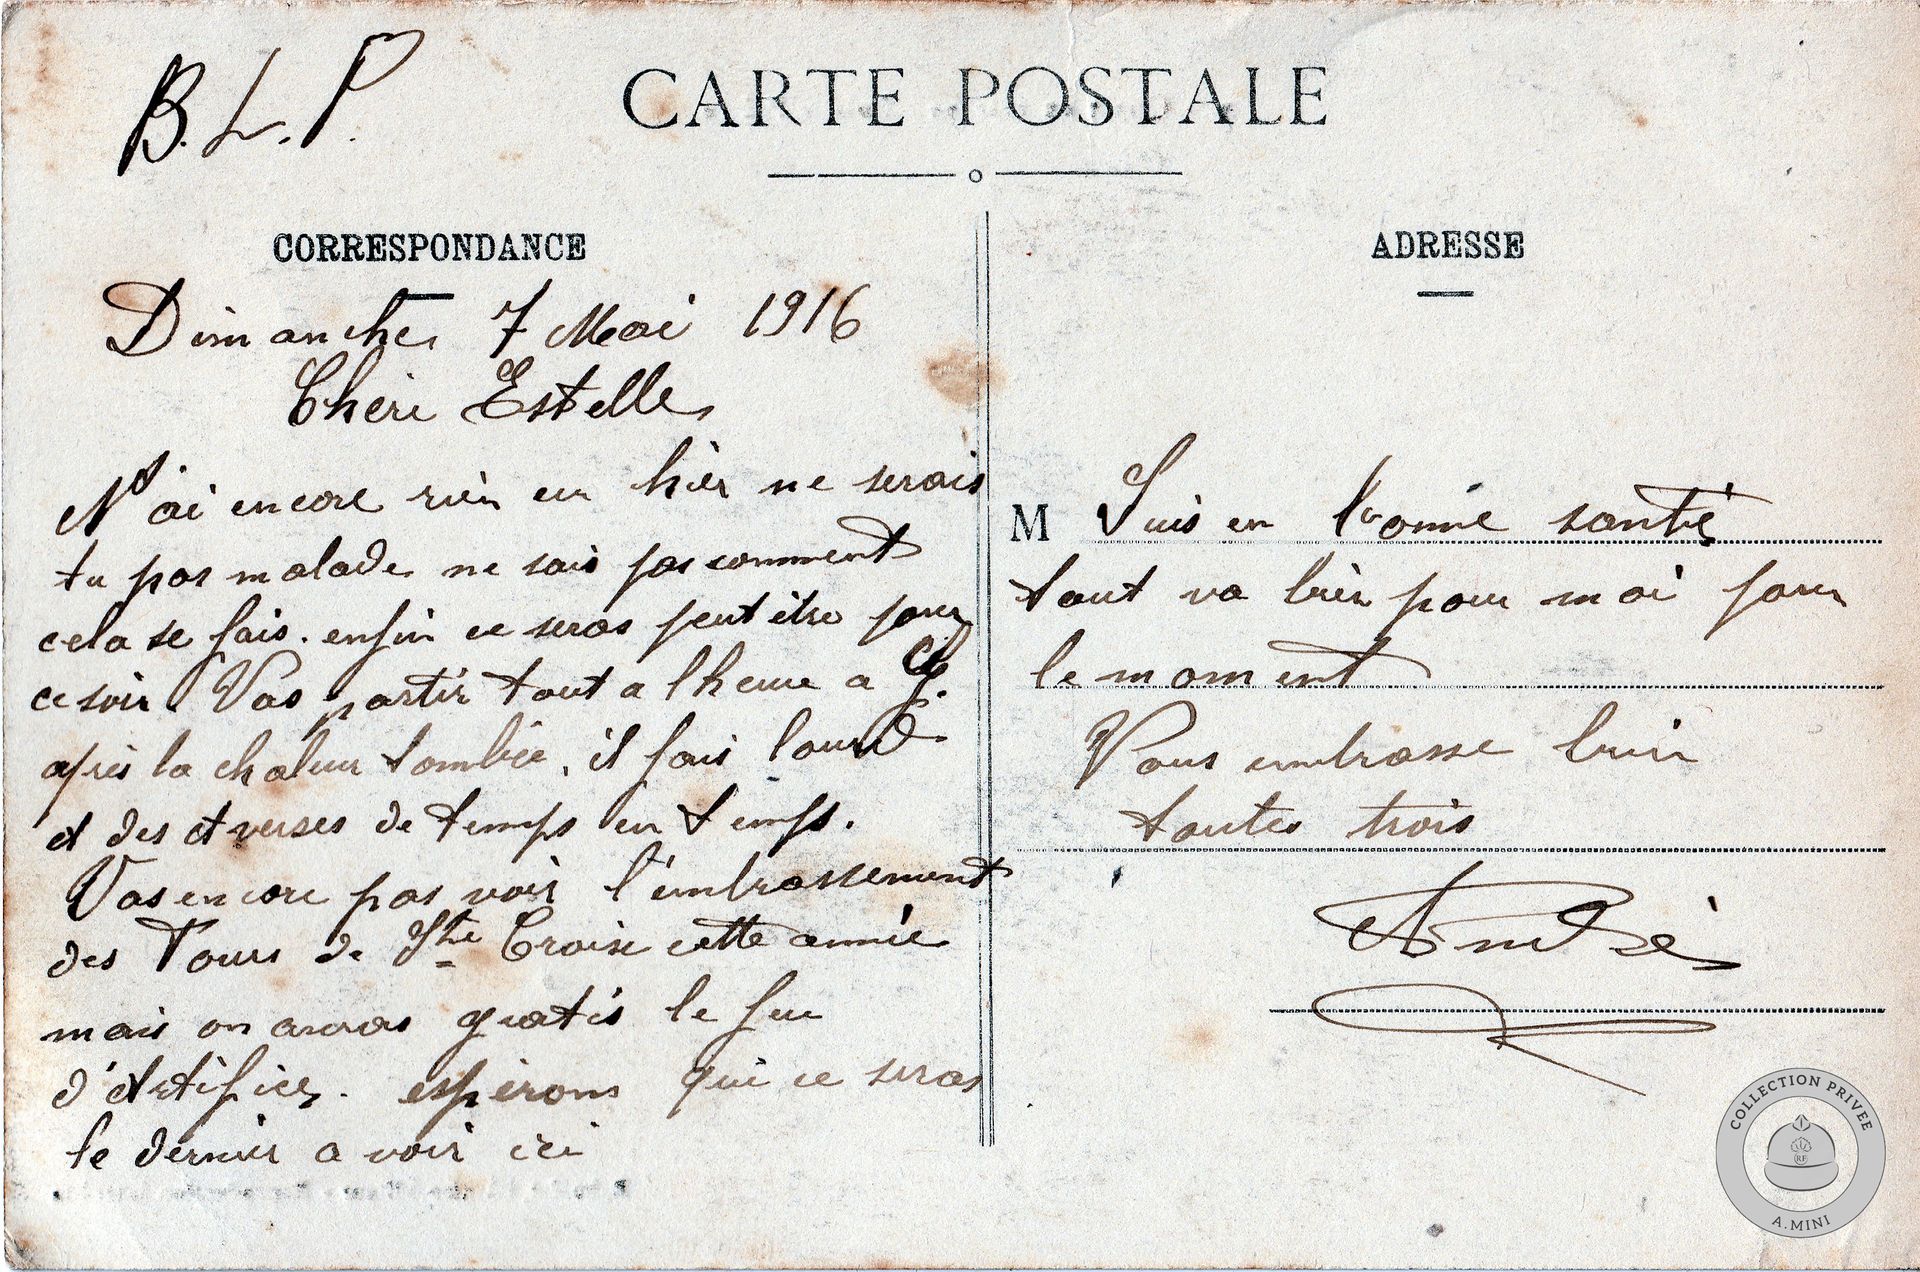 B. L. P.
CARTE POSTALE
CORRESPONDANCE
Dimanche 7 Mai 1916
Chéri Estelle
N'ai encore rien eu hier ne serais
tu pas malade ne sais pas comment
cela se fais. enfin ce seras peut être pour
ce soir Vas partir tout a l'heure a
après la chaleur tombée, il fais lourd
et des averses de temps en temps.
Vas encore pas voir l'embrassement
des Tours de Ste Croise cette année
mais on auras gratis le feu
d'Artifice. espérons qui ce seras
le dernier a voir ici
ADRESSE
M Suis en bonne santé
tout va bien pour moi pour
le moment
Vous embrasse bien
toutes trois
André
COLLECTION PRIVEE
RF
A.MINI